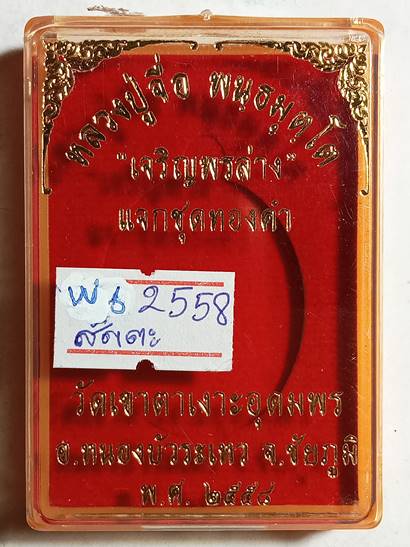 หลวงปู่จื่อ พนฺธมุตฺโต
"เจริญพรล่าง"
แจกชุดทองคำ
2558
วัดเขาตาเงาะอุดมพร
อ.หนองบัวระเหว จ.ชัยภูมิ
พ.ศ. ๒๕๕๘